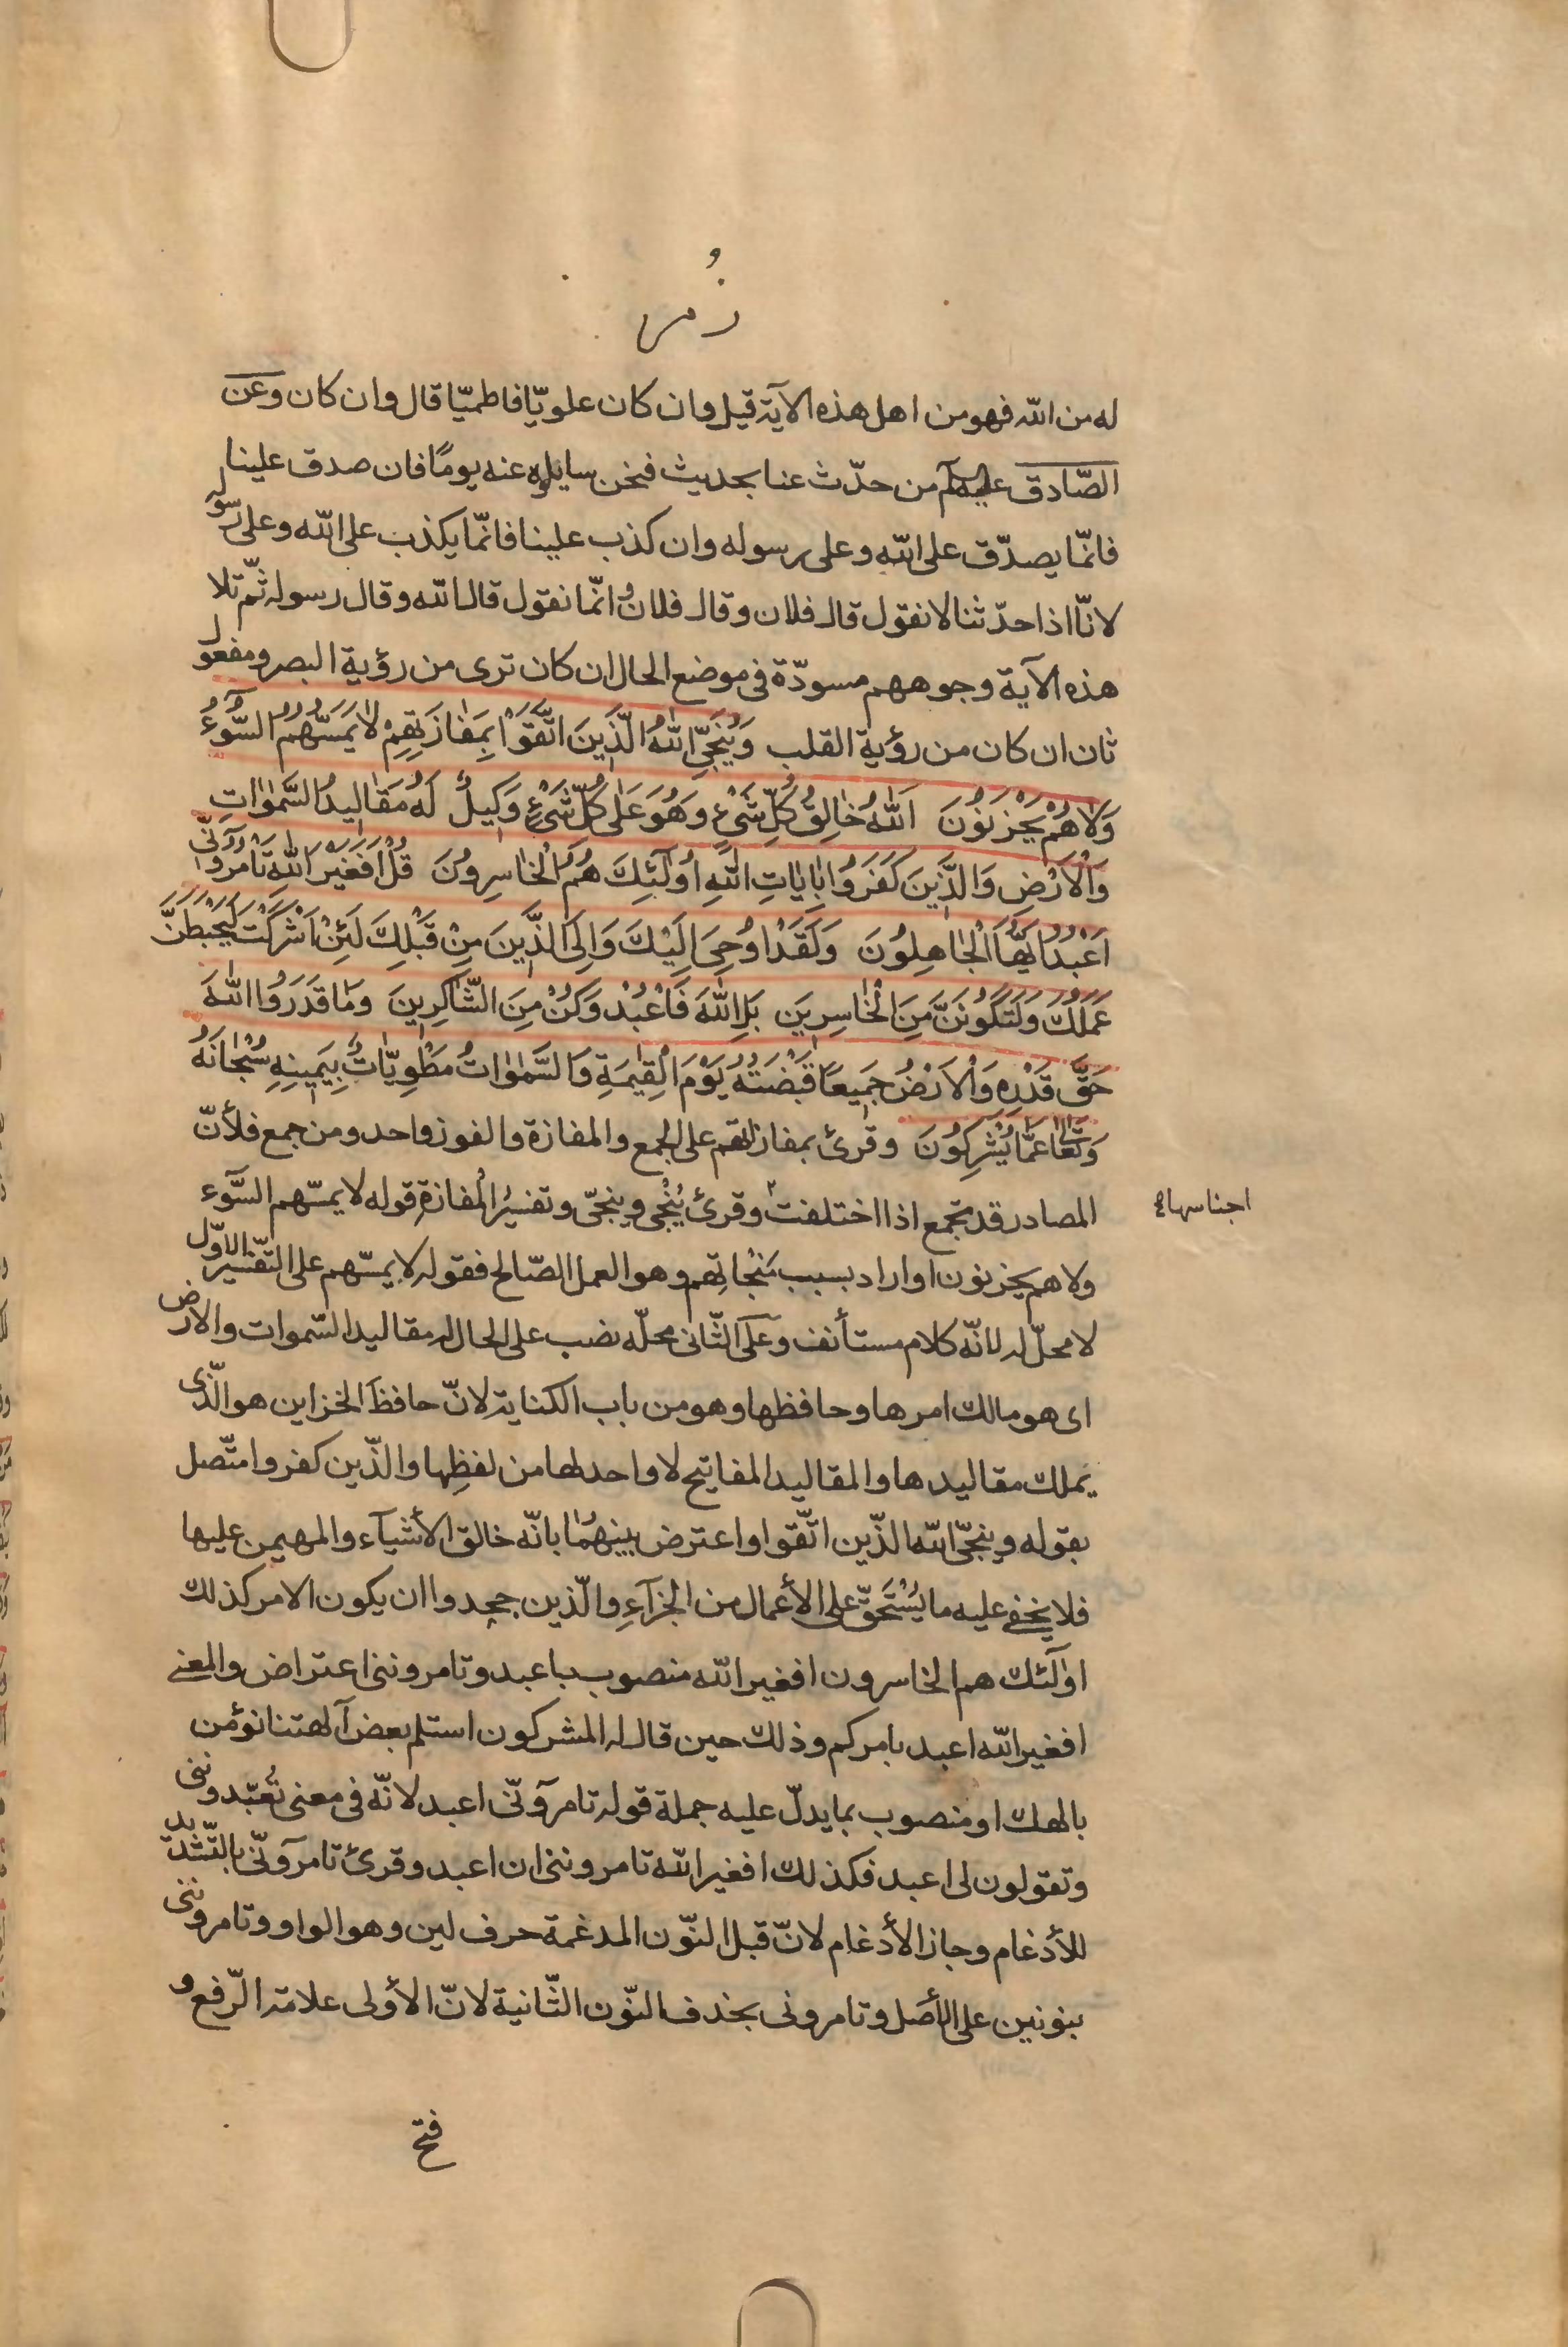 زُمر
له من الله فهو من اهل هذه الآية قيل وان كان علويّا فاطميّا قال وان كان وعن
الصّادق عليه السلم من حدّث عنا بحديث فنحن سايلوه عنه يومًا فان صدق علينا
فانّما يصدّق على الله وعلى رسوله وان كذب علينا فانّما يكذب على الله وعلى رسوله
لانّا اذا حدّثنا لا نقول قال فلان وقال فلانٌ انّما نقول قال الله وقال رسوله ثمّ تلا
هذه الآية وجوههم مسودّة فى موضع الحال ان كان ترى من رؤية البصر ومفعول
ثان ان كان من رؤية القلب وَيُنَجِّى اللّٰهُ الَّذِينَ اتَّقَوْا بِمَفَازَتِهِمْ لَا يَمَسُّهُمُ السُّوۤءُ
وَلَا هُمْ يَحْزَنُونَ اَللّٰهُ خَالِقُ كُلِّ شَىْءٍ وَهُوَ عَلٰى كُلِّ شَىْءٍ وَكِيلٌ لَهُ مَقَالِيدُ السَّمٰوَاتِ
وَالْاَرْضِ وَالَّذِينَ كَفَرُوا بِاٰيَاتِ اللّٰهِ اُولٰۤئِكَ هُمُ الْخَاسِرُونَ قُلْ اَفَغَيْرَ اللّٰهِ تَأْمُرُوۤنِّى
اَعْبُدُ اَيُّهَا الْجَاهِلُونَ وَلَقَدْ اُوحِىَ اِلَيْكَ وَاِلَى الَّذِينَ مِنْ قَبْلِكَ لَئِنْ اَشْرَكْتَ لَيَحْبَطَنَّ
عَمَلُكَ وَلَتَكُونَنَّ مِنَ الْخَاسِرِينَ بَلِ اللّٰهَ فَاعْبُدْ وَكُنْ مِنَ الشَّاكِرِينَ وَمَا قَدَرُوا اللّٰهَ
حَقَّ قَدْرِهِ وَالْاَرْضُ جَمِيعًا قَبْضَتُهُ يَوْمَ الْقِيٰمَةِ وَالسَّمٰوَاتُ مَطْوِيَّاتٌ بِيَمِينِهِ سُبْحَانَهُ
وَتَعَالٰى عَمَّا يُشْرِكُونَ وقرئ بمفازاتهم على الجمع والمفازة والفوز واحد ومن جمع فلأنّ
المصادر قد تجمع اذا اختلفت وقرئ يُنْجى وينجّى وتفسيرُ المفازةِ قوله لا يمسّهم السّوء
اجناسها صح
ولا هم يحزنون او اراد بسبب مَنْجاتِهم وهو العمل الصّالح فقوله لا يمسّهم على التّفسير الاوّل
لا محلّ له لانّه كلام مستأنف وعلى الثّانى محلّه نصب على الحال له مقاليد السّموات والارض
اى هو مالك امرها وحافظها وهو من باب الكناية لانّ حافظَ الخزاين هو الّذى
يملك مقاليدها والمقاليد المفاتيح لا واحد لها من لفظِها والّذين كفروا متّصل
بقوله وينجّى الله الّذين اتّقوا واعترض بينهُما بانّه خالق الأشيآء والمهيمن عليها
فلا يخفى عليه ما يُسْتَحَقّ على الأعمال من الجزآءِ والّذين جحدوا ان يكون الامر كذلك
اولۤئك هم الخاسرون افغير الله منصوب باعبد وتامروننى اعتراض والمعنى
افغير الله اعبد بامركم وذلك حين قال له المشركون استلم بعض آلهتنا نؤمن
بالهك او منصوب بما يدلّ عليه جملة قوله تامرۤونّى اعبد لانّه فى معنى تُعبّدوننى
وتقولون لى اعبد فكذلك افغير الله تامروننى ان اعبد وقرئ تامرۤونّى بالتّشديد
للأدغام وجاز الأدغام لانّ قبل النّون المدغمة حرف لين وهو الواو وتامروننى
بنونين على الأصل وتامرونى بحذف النّون الثّانية لانّ الأولى علامة الرّفع و
فتح